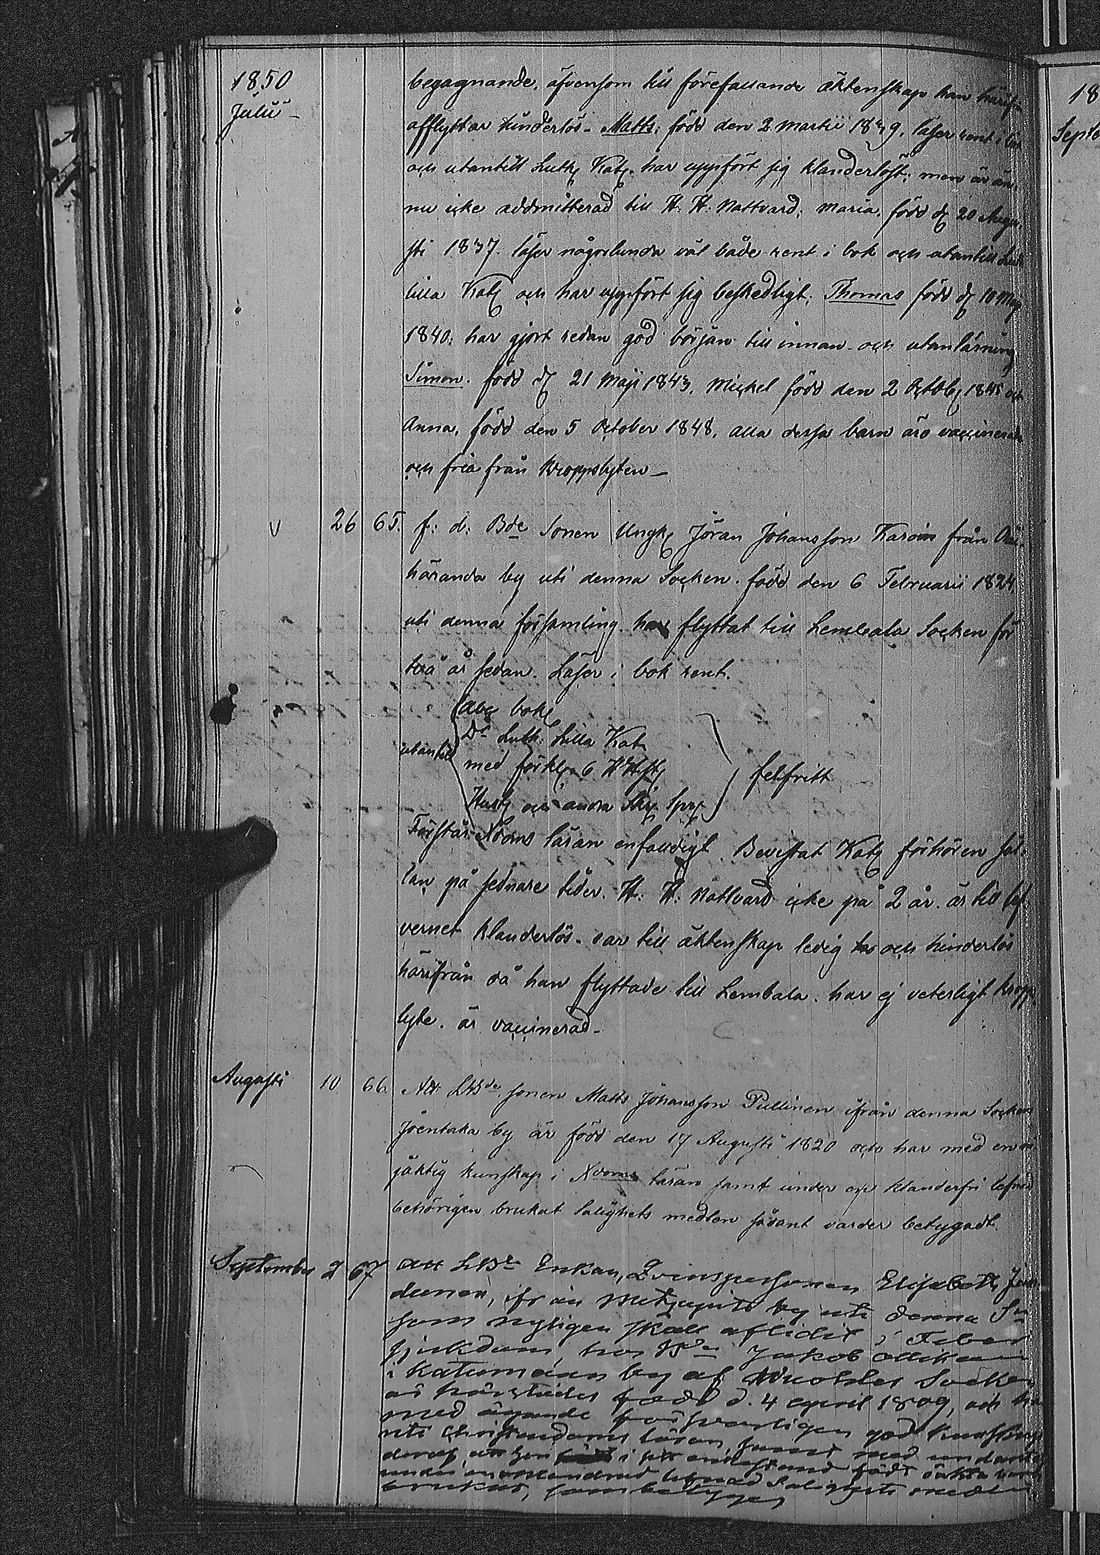 1850
Julii
begagnande, äfvensom till förefallande äktenskap kan härif
afflyttar hinderlös - Matts, född den 2 Martii 1839, läser rent i bok
och utantill Luth Kat. har uppfört sig klanderlöst, men är än
nu icke admitterad till H. H. Nattvard; Maria, född d 20 Augu
sti 1837. läser någorlunda väl både rent i bok och utantill Luth
lilla Kat och har uppfört sig beskedligt, Thomas född d 10 Maji
1840, har gjort redan god början till innan- och utanläsning
Simon. född d 21 Maji 1843, Mickel född den 2 Octob 1845 och
Anna, född den 5 October 1848, alla dessa barn äro vaccinerade
och fria från kroppslyten -
26 65. f: d: Bde Sonen Ungk Jöran Johansson Karoin från
häranda by uti denna Socken. född den 6 Februarii 1824,
uti denna församling har flyttat till Lembala Socken för
två år sedan. Läser i bok rent.
Abc bok
Dr Luth. Lilla Kat
utantill med förkl. 6 H
Hust och andra Skr. Spr felfritt
Förstår Xdoms läran enfaldigt. Bevistat Kat förhören säl
lan på sednare tider. H. H. Nattvard icke på 2 år. är till lef
vernet klanderlös. var till äktenskap ledig och hinderlös
härifrån då han flyttade till Lembala. har ej veterligt kropps
lyte. är vaccinerad.
Augusti 10 66. Att LBde Sonen Matts Johansson Pullinen ifrån denna Socken
Joentaka by är född den 17 Augusti 1820 och har med en
jäktig kunskap i Xdoms läran samt under en klanderfri lefnad
behörigen brukat Salighets medlen sådant varder betygadt
September 2 67 Att LBde Enkan, Qvinspersonen Elisabeth
dunen, ifrån by uti denna So
som nyligen skall aflidit i Feber
sjukdom hos Bde Jakob
i Katumäen by af Socken
är härstädes född d. 4 April 1809, och har
med ägande försvarligen god kunskap
uti Christendoms läran, samt med undantag
deraf, att hon i sitt födt oäkta barn
under en oklandrad lefnad Salighets medlen
brukat, som betygas
18
Septe